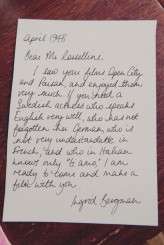 April 1948
Dear Mr Rossellini,
I saw your films Open City
and Paisan, and enjoyed them
very much. If you need a
Swedish actress who speaks
English very well, who has not
forgotten her German, who is
not very understandable in
French, and who in Italian
knows only "ti amo", I am
ready to come and make a
film with you.
Ingrid Bergman